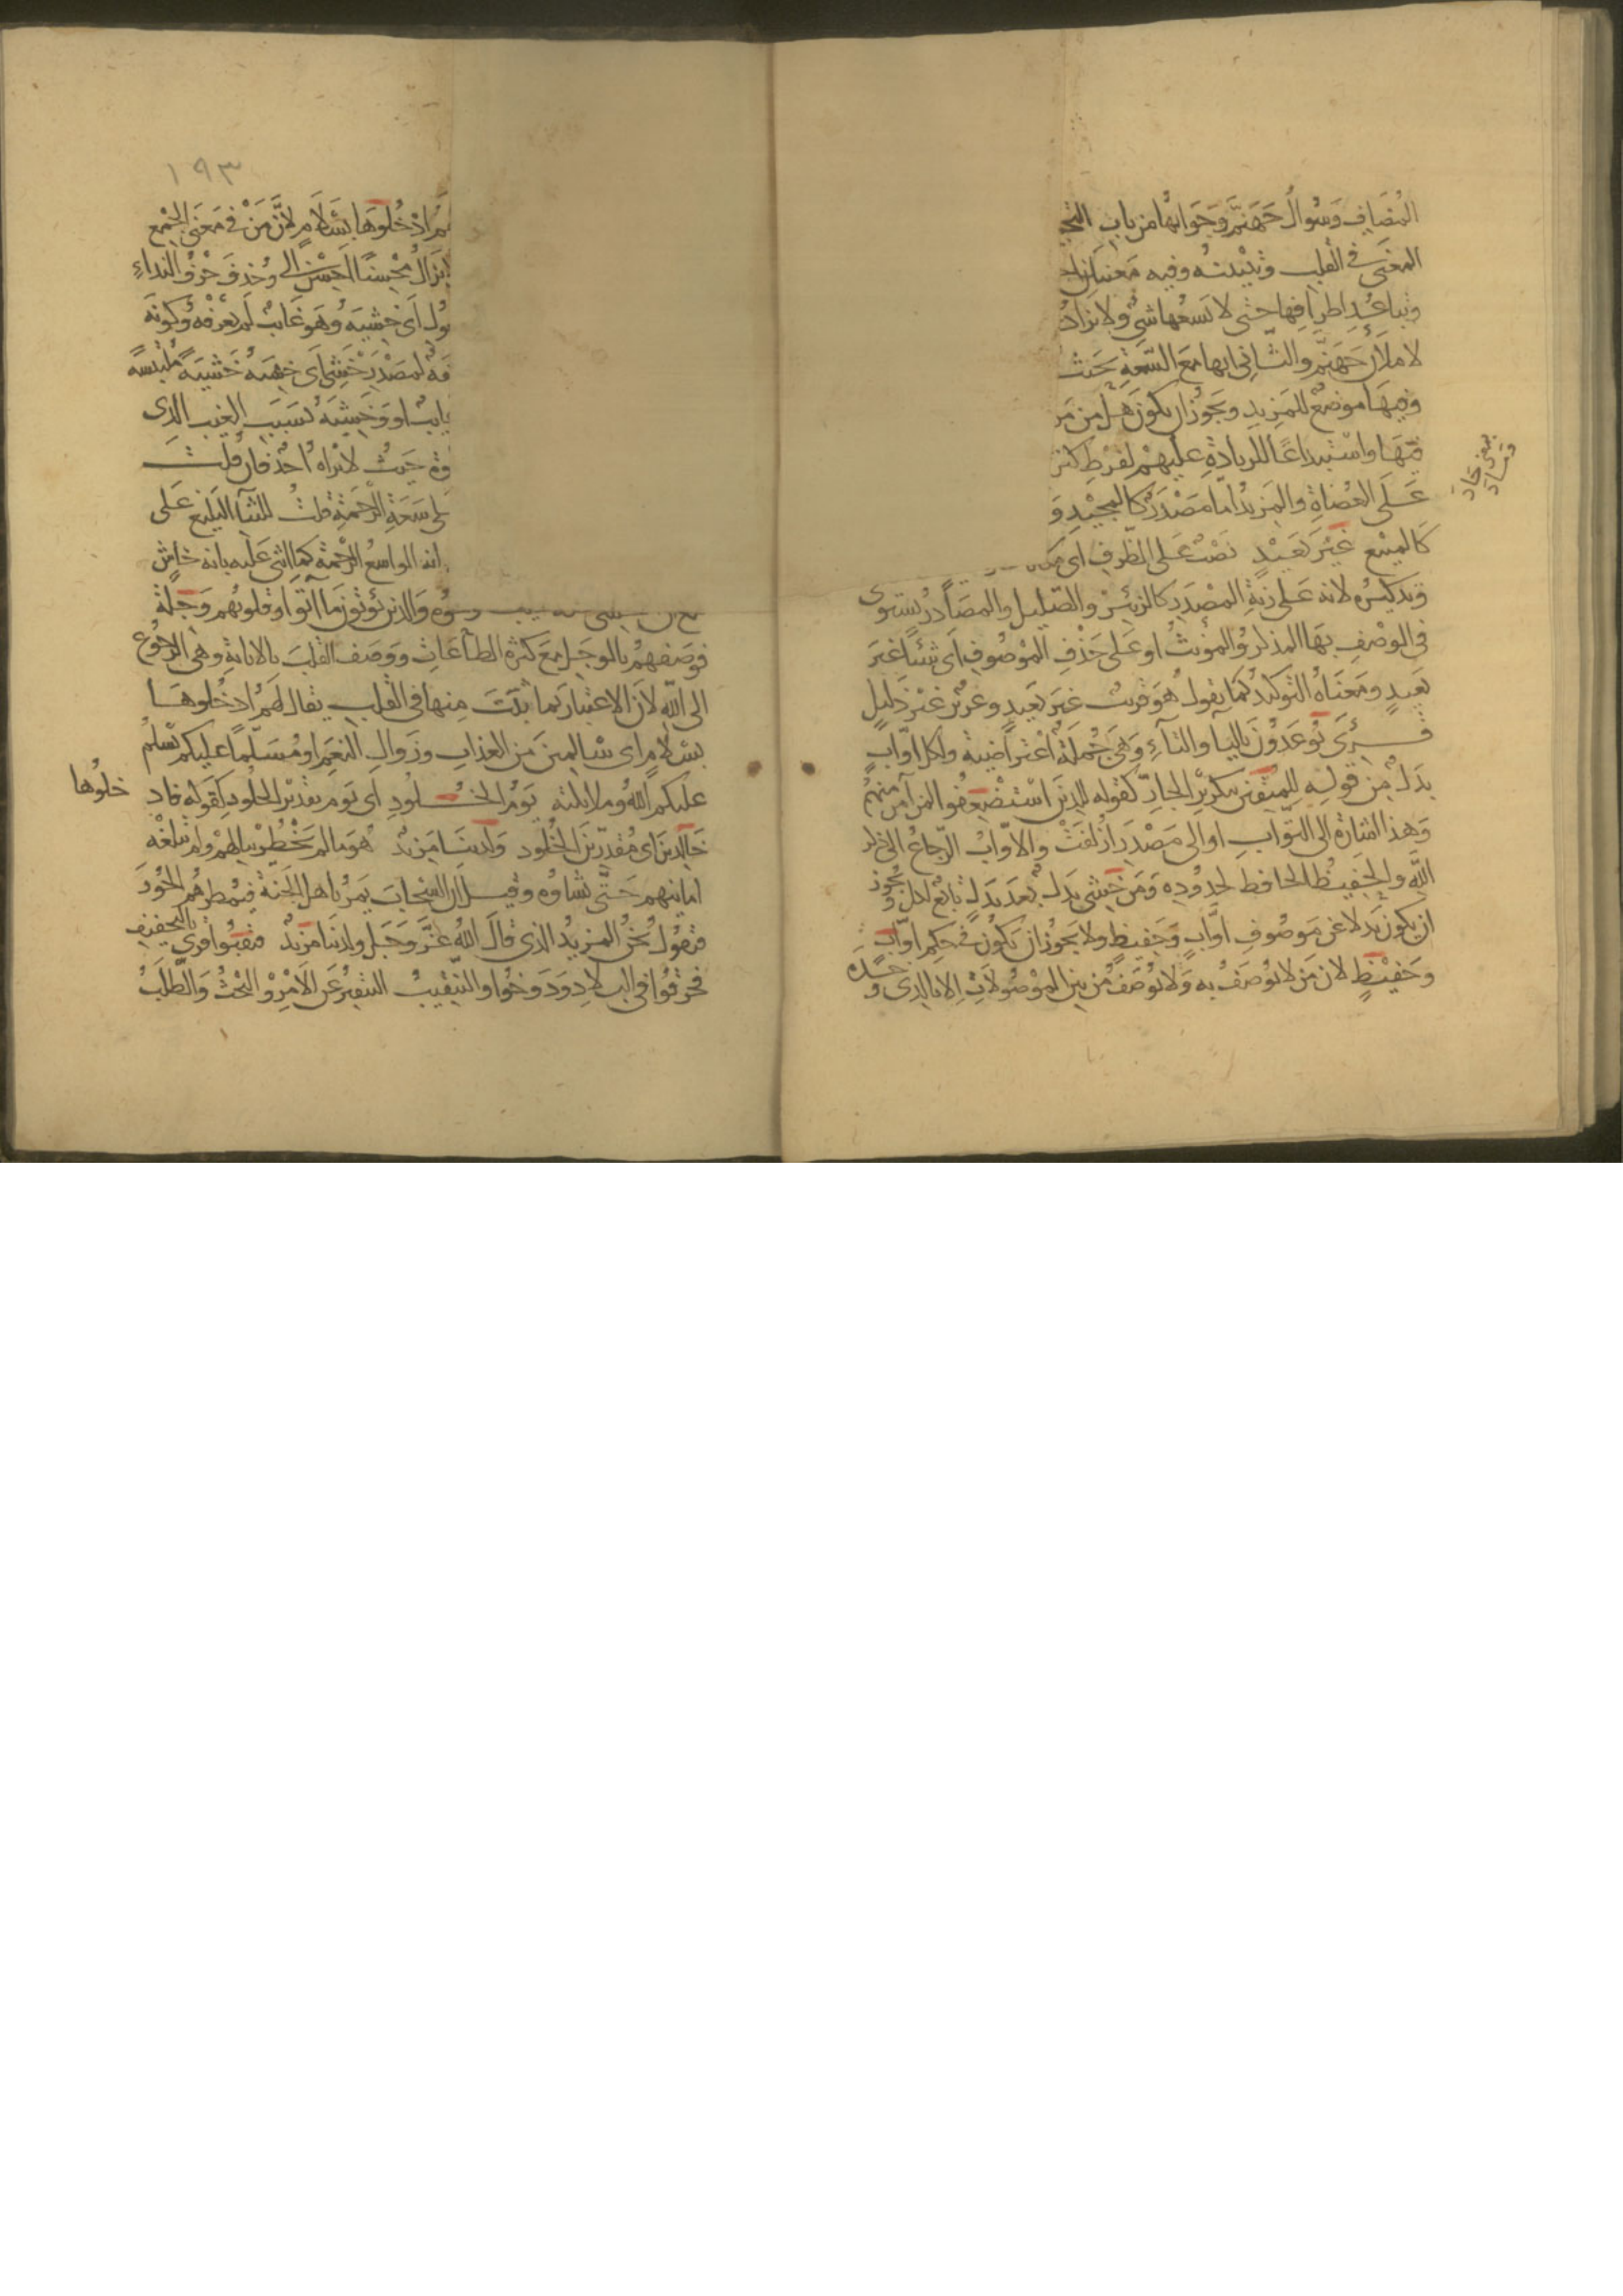 المُضَاف وَسُوالُ جَهَنّم وَجَوابُهَا من باب
المَعْنَى فى القلب وتبيينه وفيه معنيان
وتباعُدِ اطرافها حتى لا تسعُها شى ولا يزادُ
لاملأنّ جَهنّم والثانى انها مع السّعَةِ بحيث
وفيها موضعٌ للمزيد ويجوز ان يكون هل من
فيهَا واسْتبداعًا للزيادةِ عليهم لفرط كثر
عَلَى العُصَاةِ والمزيدُ امّا مَصْدَرٌ كالمجيد و
كالمبيع غَيْرَ بَعيْدٍ نصْبٌ عَلى الظرف اى
وتذكيرُه لانه عَلى زنةِ المصْدَرِ كالزئيرْ والصّليل والمصَادرُ يستوى
فى الوصْفِ بهَا المذكرُ والمُونثُ او عَلى حَذْفِ المَوْصُوفِ اى شيئًا غيرَ
بَعيدٍ ومَعْنَاهُ التوكيدُ كمَا يقولُ هُوَ قريبٌ غيرَ بَعيدٍ وعزيزٌ غيْرَ ذليلٍ
قُرِئ تُوعَدُوْنَ باليَا والتآءِ وَهىَ جُمْلَةٌ اعْتراضيَة ولكل اوّابٍ
بدَلٌ مِن قولِه لِلمتقين بتكريْرِ الجارّ كقوله للذينَ استُضْعِفُوا لمن آمَنَ منهُم
وَهذا اشارَة الى الثوابِ او الى مَصْدَرِ ازلفَتْ والاوّابُ الرّجاعُ الى ذكر
اللّهِ والحَفيْظُ الحافظ لحدُودِه وَمَن خشى بدلٌ بَعدَ بَدلٍ تابعٌ لكل ويجُوز
ان يكونَ بَدلا عَن مَوصُوفِ اوَّابٍ وَحَفيظٍ ولا يَجوْزُ ان يكوُن فى حكمِ اوّابٍ
وحَفيْظٍ لان مَن لا يوُصَفُ به وَلا يُوصَفُ مِن بين المَوْصُولاتِ الا بالذى وحدَه
١٩٣
لهم ادْخُلُوهَا بسَلامٍ لانَّ مَنْ فى مَعنَى الجَمْع
لا يزالُ محسِنًا احْسِنْ الى وحُذِفَ حَرْفُ النداءِ
عُول اى خشيَهُ وهو غائبٌ لم يعْرفْهُ وكونَه
فَة لمصْدَر خَشِى اى خشيَهُ خَشْيَةً مُلتبسَةً
غائبٌ او وخَشِيَه بسَبَبِ الغيب الذى
حَيثُ لا يَراه احَدٌ فان قلت
عَلى سَعَةِ الرَّحْمَةِ قلتُ للثناء البَليغ عَلى
انه الواسعُ الرّحْمَةِ كما اثنى عَليه بانه خاشٍ
وَالذين يُؤتُونَ مَا آتوا وقلوبُهم وَجلَةٌ
فوَصَفهمُ بالوجَلِ مَعَ كثرةِ الطاعَاتِ ووصف القلبَ بالانابةِ وهى الرجُوعُ
الى اللّهِ لانّ الاعتبارَ بما ثبَتَ مِنها فى القلبِ يقال لهُم ادخُلوهَا
بسَلامٍ اى سَالمينَ مِن العذابِ وزَوالِ النعَمِ او مُسَلّمًا عليكم يُسَلمُ
عَليكم اللّهُ وملائكته يَومُ الخُلُودِ اى يَوم تقديْر الخلُودِ كقوله فاد
خلُوها
خَالدينَ اى مُقدّرينَ الخُلُود وَلَديْنَا مَزيدٌ هُوَ ما لمْ يَخْطُرْ ببالهمْ ولمْ تبلغْه
امانيهم حَتّى يَشاؤُه وقيل ان السَحابَ يَمرُ باهل الجنةِ فيُمطرهُم الحُوْرَ
فتقُولُ نحنُ المزيدُ الذى قالَ اللّهُ عَزَّ وَجَلَّ ولديْنَا مَزيدٌ فنَقَبُوا قرئ بالتخفيف
فخرَقُوا فى البلادِ ودَوّخُوا والتنقيبُ التنقيرُ عَن الامْرِ والبَحْثُ وَالطَّلَبُ